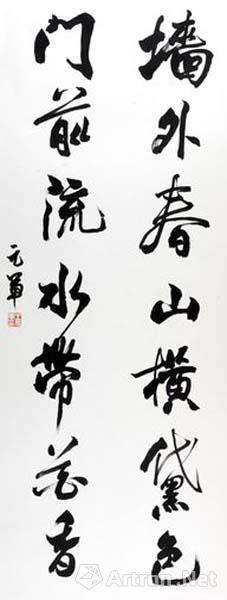 墙外春山横黛色
門前流水帶花香
元军
Artron.Net